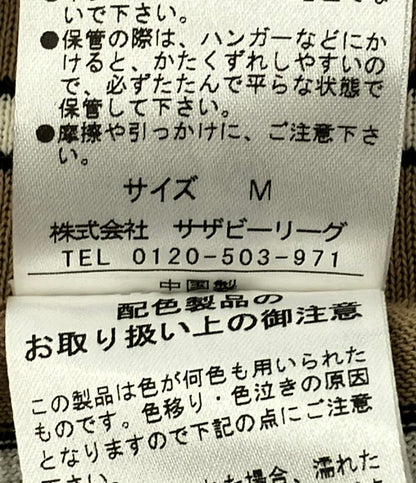 いで下さい。
●保管の際は、ハンガーなどにか
けると、かたくずれしやすいの
で、必ずたたんで平らな状態で
保管して下さい。
●摩擦や引っかけに、ご注意下さ
い。
サイズ M
株式会社 サザビーリーグ
TEL 0120-503-971
中国製
配色製品の
お取り扱い上の御注意
この製品は色が何色も用いられた
ものです。色移り・色泣きの原因
となりますので下記の点にご注意
下さい。
た場合、濡れた